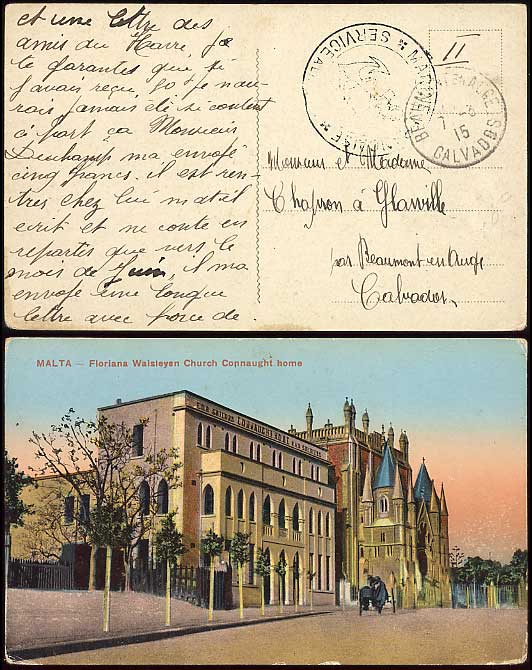 et une lettre des
amis du Havre je
te garantes que si
j'avais reçu, 50 f je nau-
rois jamais été si content
à part ça Monsieur
Deschamp m'a envoyé
cinq francs. il est ren-
tres chez lui mat-il
écrit et ne conte en
repartes que vers le
mois de Juin, il ma
envoyé une longue
lettre avec force de.
11
SERVICE A
MAR
BEAUM EN-AUGE
7
15
CALVADOS
Monsieur et Madame
Chapron à Glanville
par Beaumont en Auge
Calvados,
MALTA — Floriana Walsleyen Church Connaught home
CONNAUGHT HOME